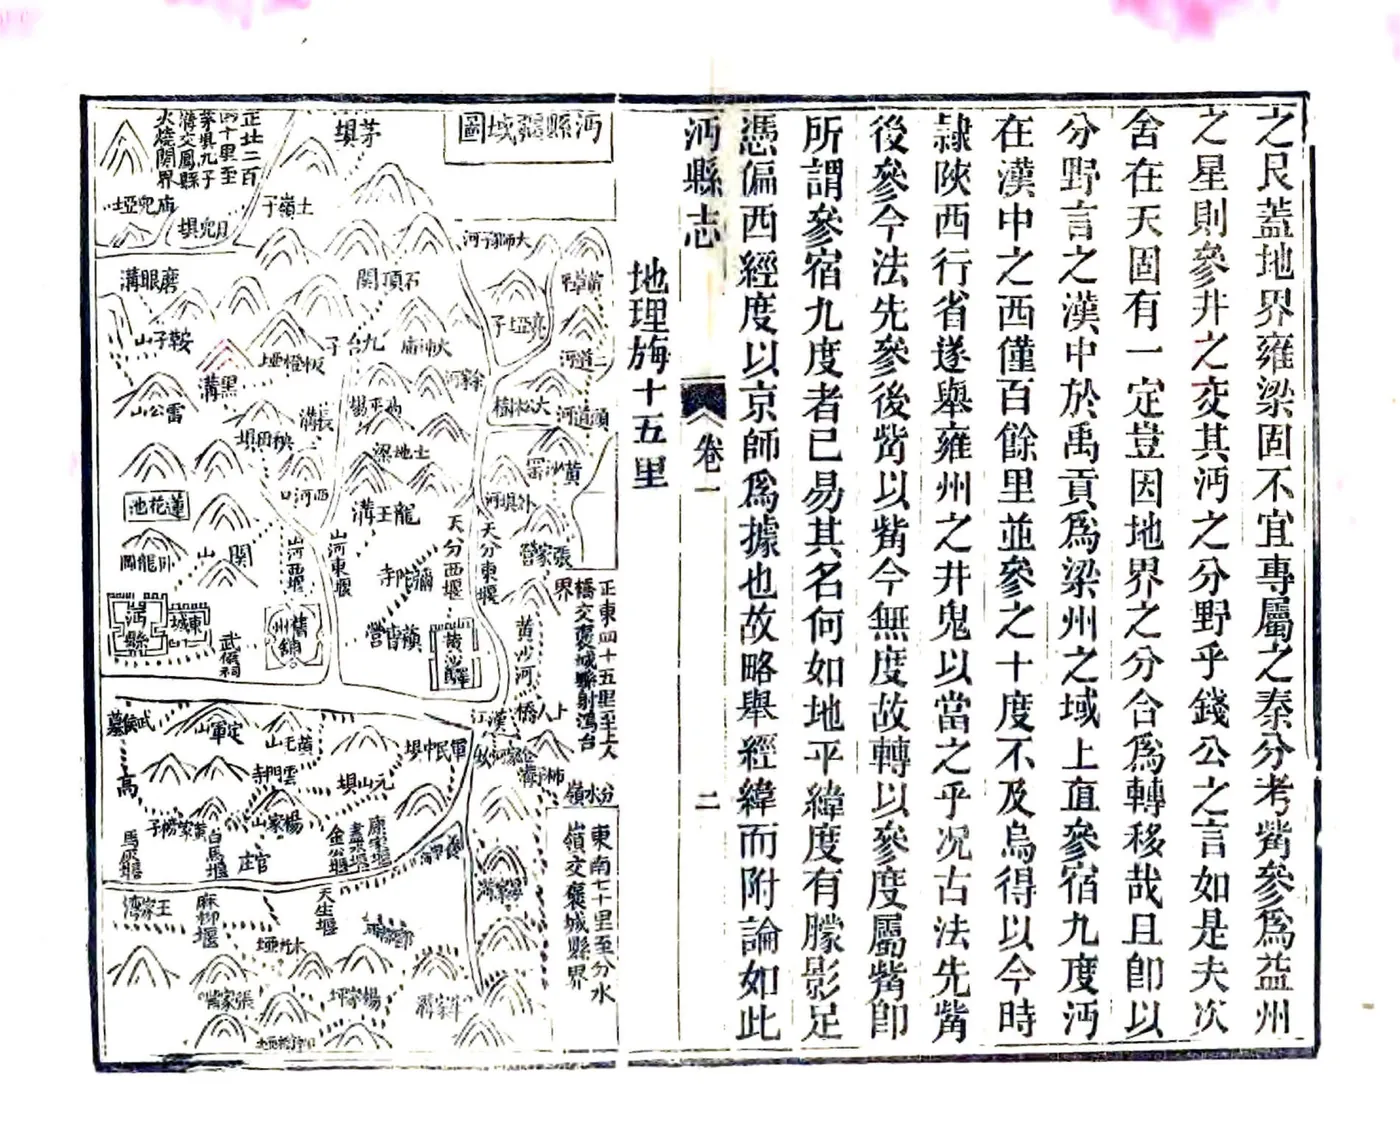 之艮蓋地界雍梁固不宜專屬之秦分考觜參爲益州
之星則參井之交其沔之分野乎錢公之言如是夫次
舍在天固有一定豈因地界之分合爲轉移哉且卽以
分野言之漢中於禹貢爲梁州之域上直參宿九度沔
在漢中之西僅百餘里並參之十度不及烏得以今時
隷陝西行省遂舉雍州之井鬼以當之乎况古法先觜
後參今法先參後觜以觜今無度故轉以參度屬觜卽
所謂參宿九度者已易其名何如地平緯度有朦影足
憑偏西經度以京師爲據也故略舉經緯而附論如此
沔縣志
卷一
二
地理
十五里
沔縣疆域圖
茅埧
正北二百
四十里至
茅埧九子
溝交鳳縣
火燒關界
廟兒埡
月兒埧
土嶺子
大師家子河
磨眼溝
石頂關
黃草坪
亮埡子
二道河
鞍子山
板橙埡
九台子
大河廟
黑溝
雷公山
徐家河
大松樹
頭道河
長溝
秧田埧
土地梁
黃沙
西河口
蓮花池
龍王溝
外埧河
張家營
臥龍岡
關山
山河西堰
山河東堰
天分西堰
天分東堰
彌陀寺
正東四十五里至上人
橋交褒城縣射鴻台
界
黃沙河
沔縣
東城
武侯祠
舊州鋪
黃沙驛
漢江
上人橋
武侯墓
定軍山
軍民中埧
雲門寺
元山埧
分水嶺
高
楊家山
黃家榜子
白馬堰
官庄
金公堰
康家堰
天生堰
東南七十里至分水
嶺交褒城縣界
王家溝
麻柳堰
張家營
楊家坪